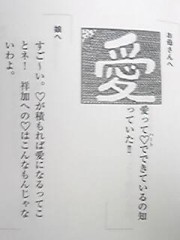 お母さんへ
愛
愛って♡でできているの知
っていた!!
娘へ
すご〜い。♡が積もれば愛になるってこ
とネ！ 祥加への♡はこんなもんじゃな
いわよ。